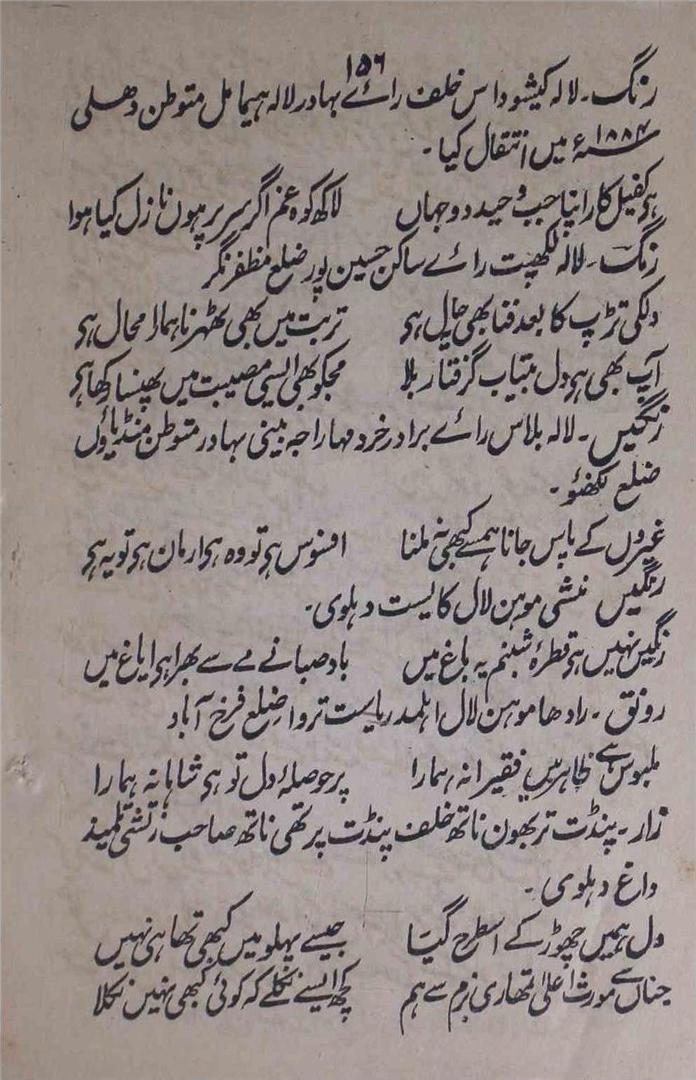 ۱۵۶
رنگ۔ لالہ کیشو داس خلف رائے بہادر لالہ ہیما مل متوطن دھلی
۱۸۸۴ء میں انتقال کیا۔
ہی کفیل کار اپنا جب وحید دو جہاں لاکھ کوہ غم اگر سر پر ہون نازل کیا ہوا
رنگ۔ لالہ لکھپت رائے ساکن حسین پور ضلع مظفر نگر
دلکی تڑپ کا بعد فنا بھی حال ہی تربت میں بھی ٹھہرنا ہمارا محال ہی
آپ بھی ہی دل بیتاب گرفتار بلا مجکو بھی ایسی مصیبت میں پھنسا رکھا ہی
رنگیں۔ لالہ بلاس رائے برادر خرد مہاراجہ بینی بہادر متوطن منڈیاؤں
ضلع لکھنؤ۔
غیروں کے پاس جانا ہمسے کبھی نہ ملنا افسوس ہی تو وہ ہی ارمان ہی تو یہ ہی
رنگیں منشی موہن لال کایست دہلوی۔
رنگیں نہیں ہی قطرۂ شبنم یہ باغ میں باد صبا نے مے سے بھرا ہی ایاغ میں
رونق۔ رادھا موہن لال اہلمد ریاست تروا ضلع فرخ آباد
ملبوس ہے ظاہر میں فقیرانہ ہمارا پر حوصلۂ دل تو ہی شاہانہ ہمارا
زار۔ پنڈت تربھون ناتھ خلف پنڈت پرتھی ناتھ صاحب زتشی تلمیذ
داغ دہلوی۔
دل ہمیں چھوڑ کے اسطرح گیا جیسے پہلو میں کبھی تھا ہی نہیں
جناں سے مورث اعلیٰ تمھاری بزم سے ہم کچھ ایسے نکلے کہ کوئی کبھی نہیں نکلا